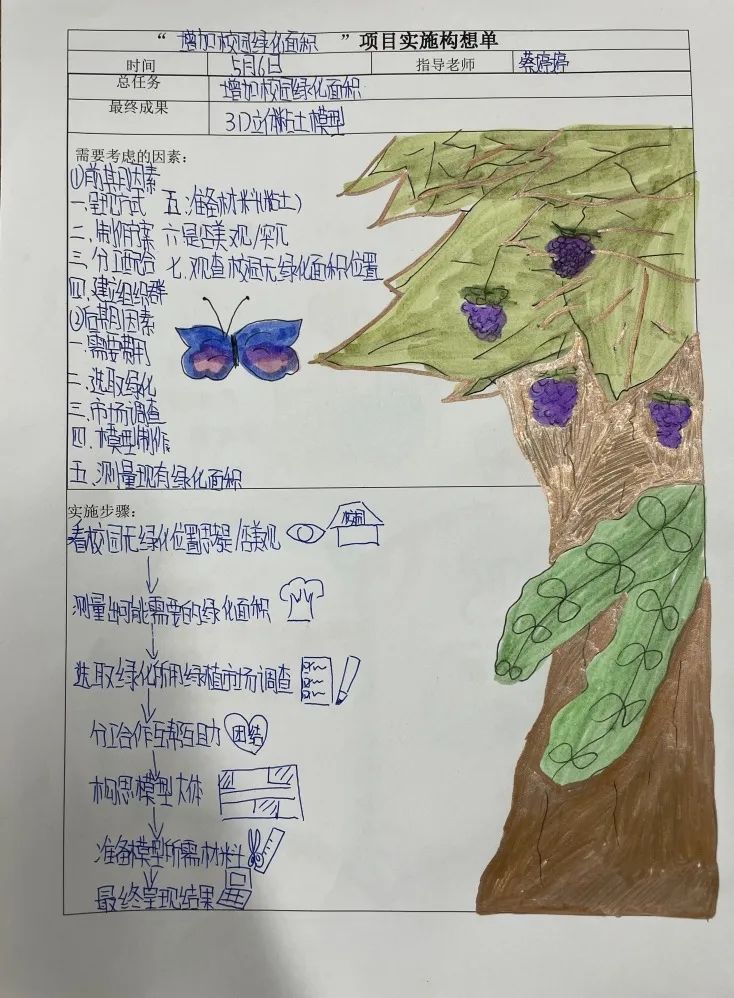 “增加校园绿化面积”项目实施构想单
时间 5月6日 指导老师 蔡婷婷
总任务 增加校园绿化面积
最终成果 3D立体粘土模型
需要考虑的因素：
①前期因素
一.呈现方式 五.准备材料(粘土)
二.制作方案 六.是否美观/突兀
三.分工配合 七.观查校园无绿化面积位置
四.建立组织群
②后期因素
一.需要费用
二.选取绿化
三.市场调查
四.模型制作
五.测量现有绿化面积
实施步骤：
看校园无绿化位置思考是/否美观
校园
测量出可能需要的绿化面积
选取绿化所用绿植市场调查
分工合作互帮互助 团结
构思模型大体
准备模型所需材料
最终呈现结果